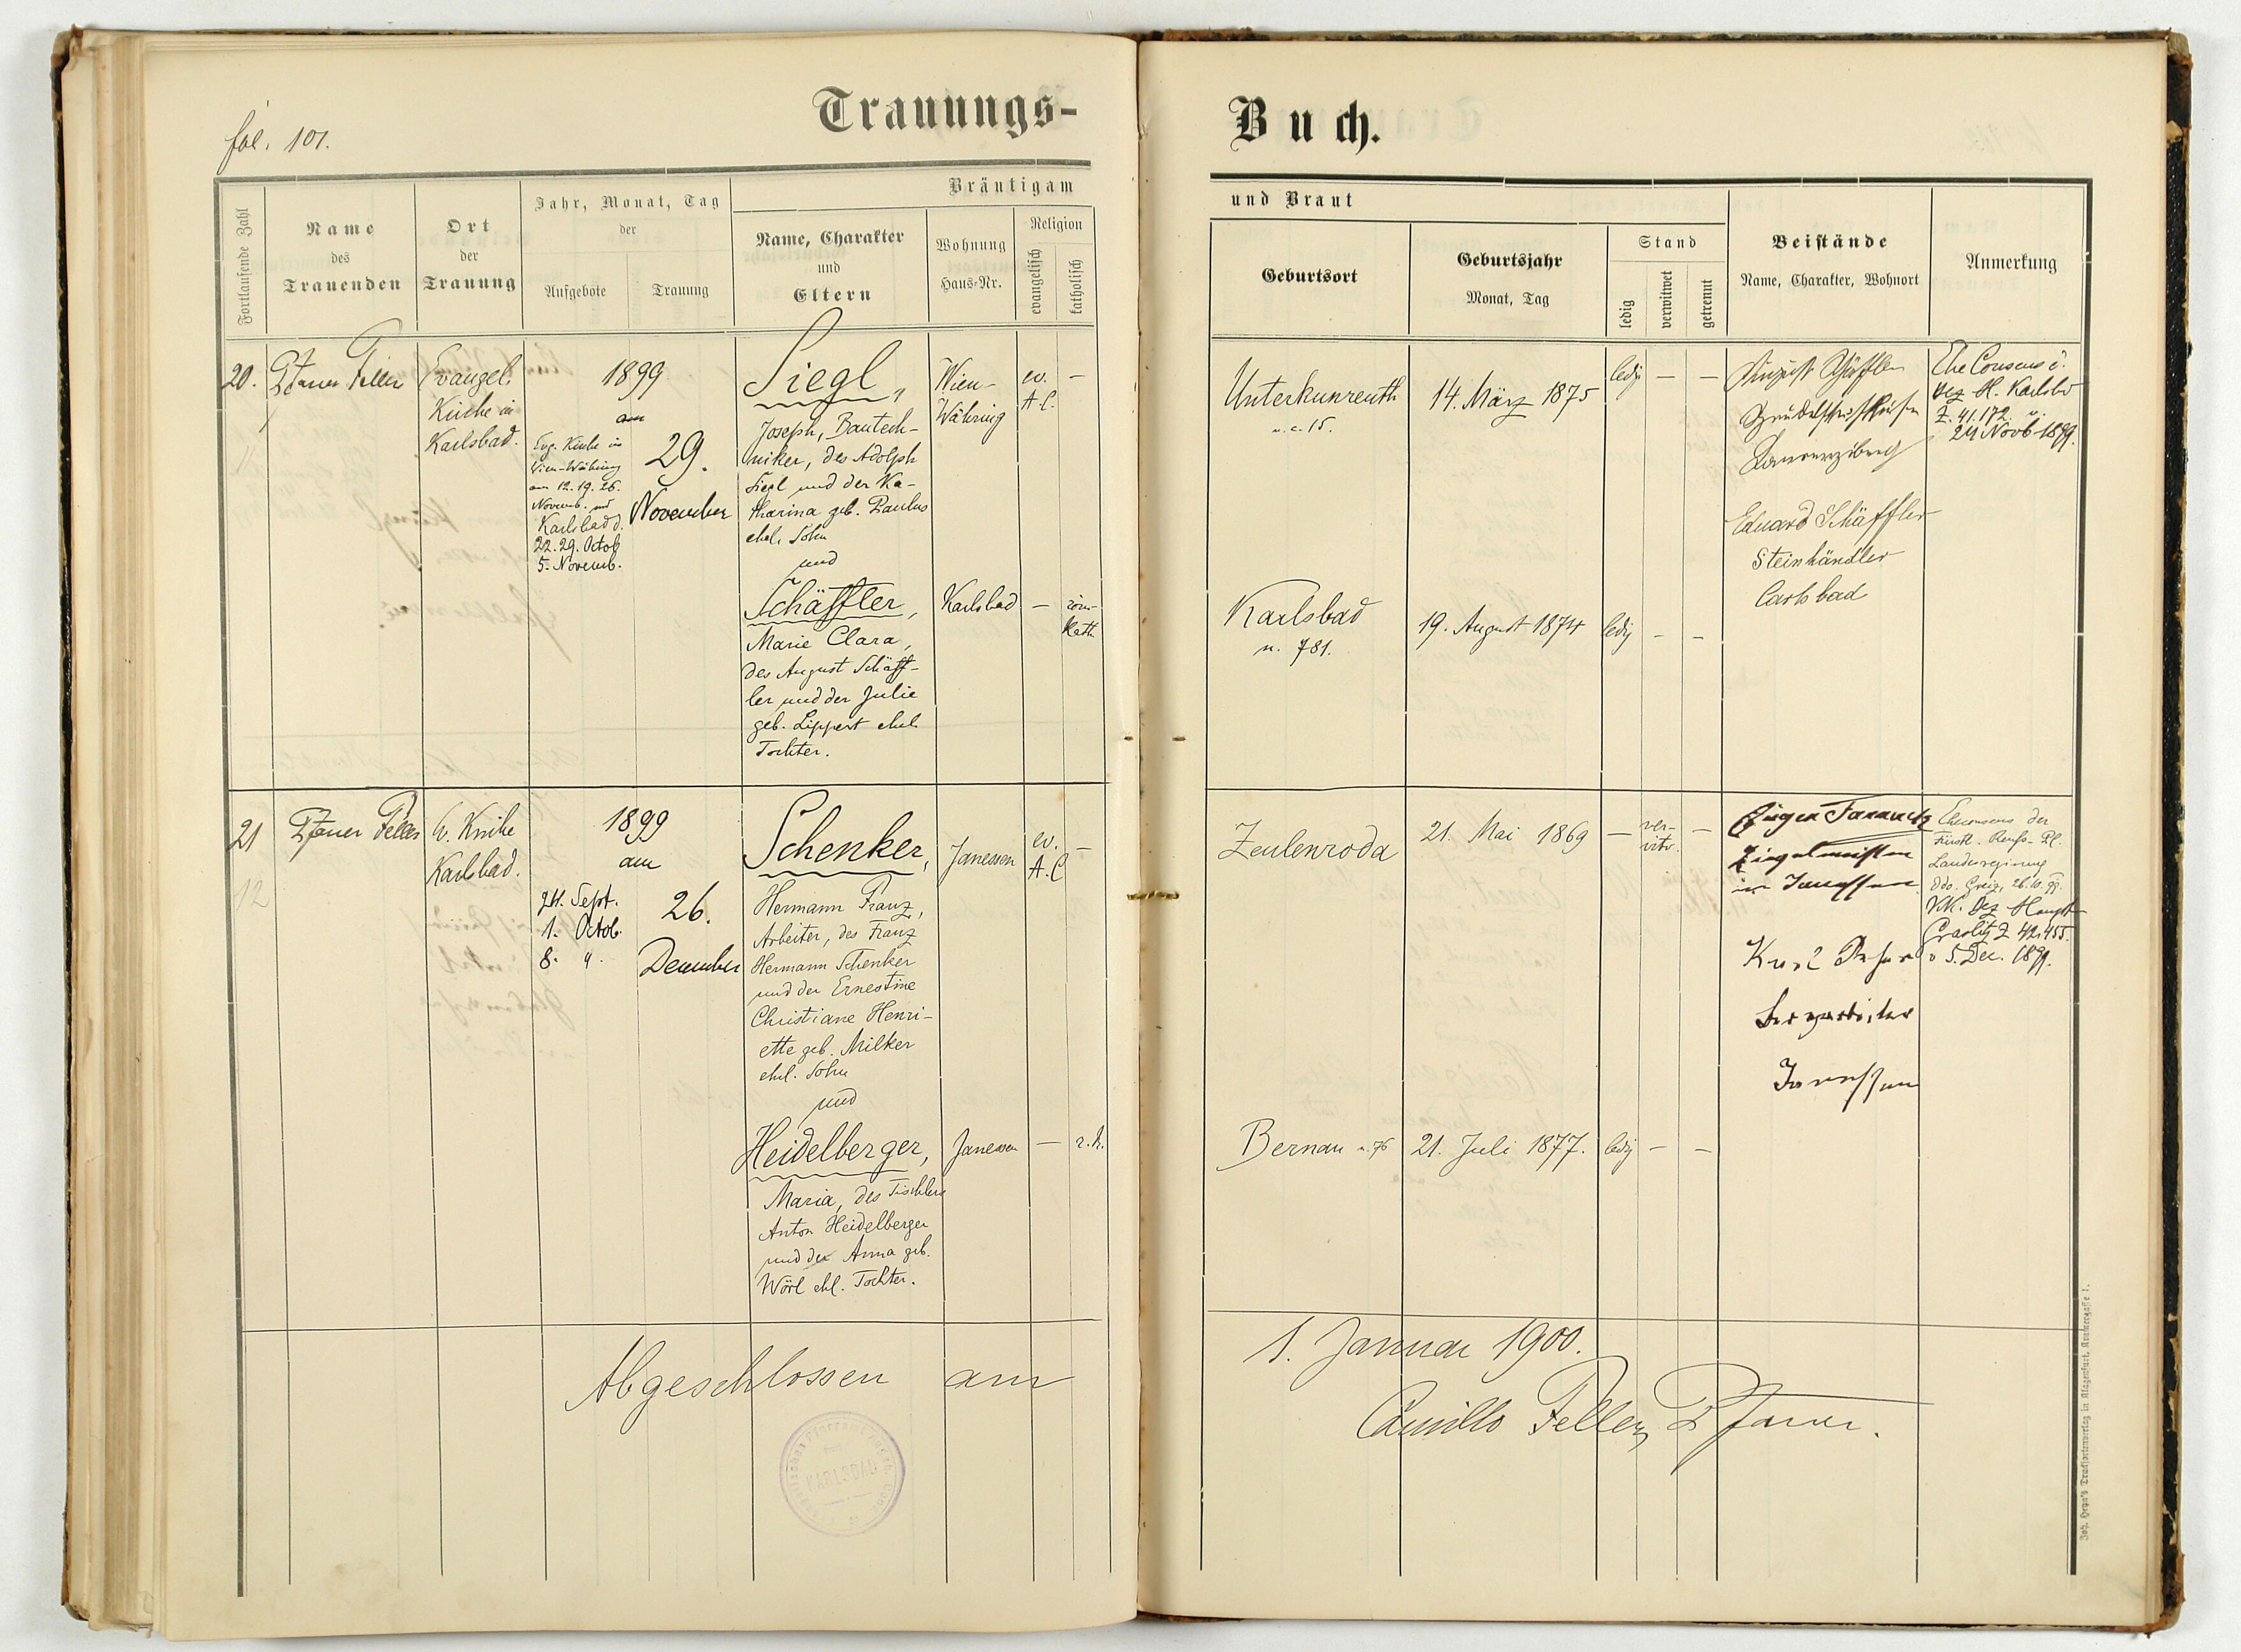 fol. 101.
Trauungs-
Buch.
Fortlaufende Zahl
Name
des
Trauenden
Ort
der
Trauung
Jahr, Monat, Tag
der
Aufgebote
Trauung
Bräutigam
Name, Charakter
und
Eltern
Wohnung
Haus-Nr.
Religion
evangelisch
katholisch
und Braut
Geburtsort
Geburtsjahr
Monat, Tag
Stand
ledig
verwitwet
getrennt
Beistände
Name, Charakter, Wohnort
Anmerkung
20.
Pfarrer Feller
Evangel.
Kirche in
Karlsbad.
1899
am
Evg. Kirche in
Wien-Währing
am 12. 19. 26.
Novemb. und
Karlsbad d.
22. 29. Octob
5. Novemb.
29.
November
Siegl,
Joseph, Bautech-
niker, des Adolph
Siegl und der Ka-
tharina geb. Paulus
ehel. Sohn
und
Schäffler,
Marie Clara,
des August Schäff-
ler und der Julie
geb. Lippert ehel.
Tochter.
Wien-
Währing
ev.
A.C.
—
Karlsbad
—
röm-
kath.
Unterkunreuth
n. c. 15.
14. März 1875
ledig
—
—
Karlsbad
n. 781.
19. August 1874
ledig
—
—
August Schäffler
Eduard Schäffler
Steinhändler
Carlsbad
Ehe Consens d.
Bez. H. Karlsbd
Z. 41,172 v.
24 Novb. 1899.
21
12
Pfarrer Feller
Ev. Kirche
Karlsbad.
1899
am
24. Sept.
1. Octob.
8. "
26.
December
Schenker,
Hermann Franz,
Arbeiter, des Franz
Hermann Schenker
und der Ernestine
Christiane Henri-
ette geb. Milker
ehel. Sohn
und
Heidelberger,
Maria, des Tischlers
Anton Heidelberger
und der Anna geb.
Wörl ehl. Tochter.
Janessen
ev.
A.C
—
Janessen
—
r. k.
Zeulenroda
21. Mai 1869
—
ver-
witw.
—
Bernau n. 76
21. Juli 1877.
ledig
—
—
Ziegelmeister
in Janessen
Karl
Bergarbeiter
Janessen
Eheconsens der
Fürstl. Reuß. Pl.
Landesregierung
ddo. Greiz, 26.10.99.
Bez Haupt
Graslitz Z 42,455.
v 5. Dec. 1899.
Abgeschlossen am
1. Januar 1900.
Camillo Feller, Pfarrer.
KARLSBAD
Joh. Heyn's Drucksortenverlag in Klagenfurt, Kramergasse 1.